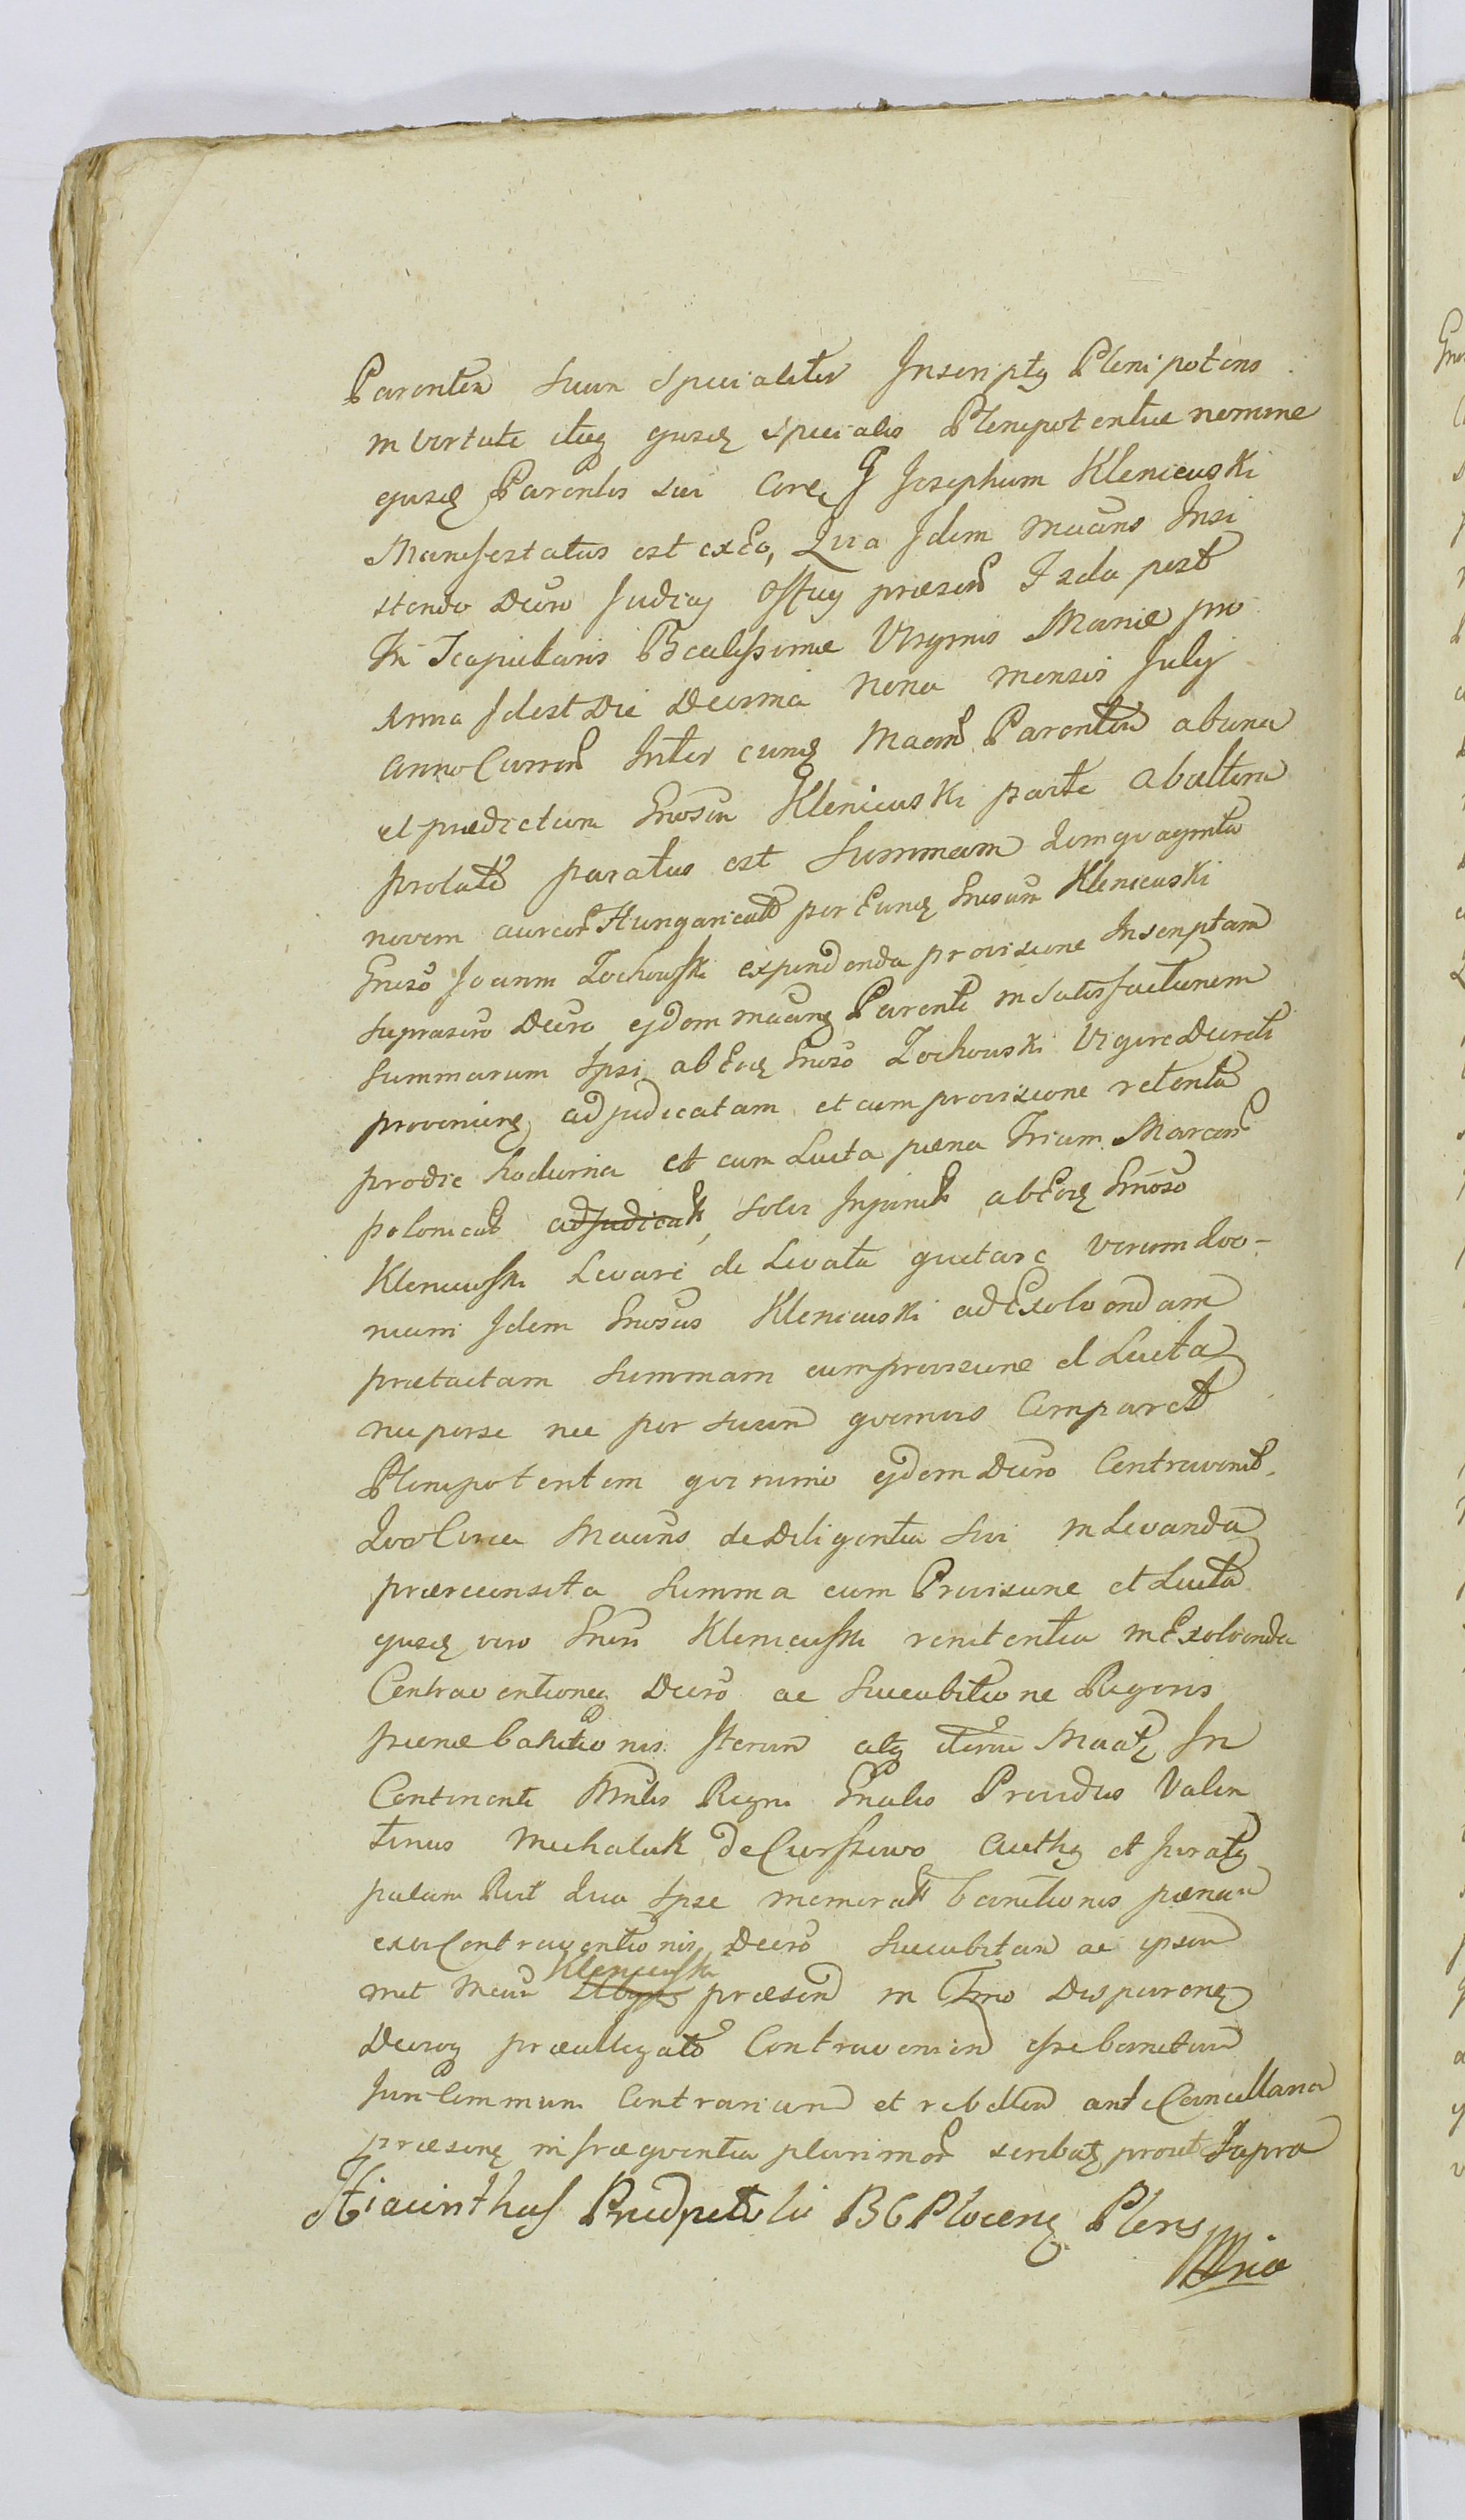 Parentem suum Specialiter Inscriptq Plenipotens
in virtute itaq ejusd specialis Plenipotentiae nomine
ejusd Parentis sui Core G Josephum Kleniewski
Manifestatus est ex Eo, Qvia Idem Maans Insi
stendo Decro Judicij Offcij praesen Fcda post
Fm Scapularis Beatissimae Virginis Mariae pro
xima Idest Die Decima Nona mensis Julij
Anno Curren Inter eund Maan Parentem ab una
et praedictum Gnosum Kleniewski parte ab altera
prolato paratus est Summam Qvinqvaginta
novem aureor Hungarical per Eund Gnosum Kleniewski
Gnoso Joanni Zochowski expendenda provisione Inscriptam
suprascro Decro ejdem maanq Parenti in Satisfactionem
Summarum Ipsi ab Eod Gnoso Zochowski Vigore Decreti
provenien adjudicatam et cum provisione retenta
pro die hodierna et cum Lucta paena Trium Marcar
polonical adjudicat, solis Injunct ab Eod Gnoso
Kleniewski Levare de Levata qvietare verum qvo-
niam Idem Gnosus Kleniewski ad Exolvendam
praetactam Summam cum provisione et Lucta
nec per se nec per suum qvemvis Comparet
Plenipotentem qvi nimio ejdem Decro Contravenit.
Qvo Circa Maans de Diligentia Sui in Levanda
praerecensita Summa cum Provisione et Lucta
ejusd vero Gnosi Kleniewski renitentia in Exolvenda
Contraventioneq Decro ac Succubitione Rigoris
paenae banitionis Iterum atq iterum Maatq In
Continenti Mntrlis Regni Gnalis Providus Valen
tinus Michalak de Curssewo Authq et Juratq
palam Rlit Qvia Ipse memorat banitionis paenam
exvi Contraventionis Decro Succubitam ac ipsum
met Maan Kleniewski praesen in Tmo Disparend
Decroq praeallegato Contravenien esse banitum
Juri Communi Contrarium et rebellem ante Cancellaria
praesenq in fraeqventia plurimor scribatq prout Supra
Hiacinthus Predpelski BC Plocens Plens
Mria